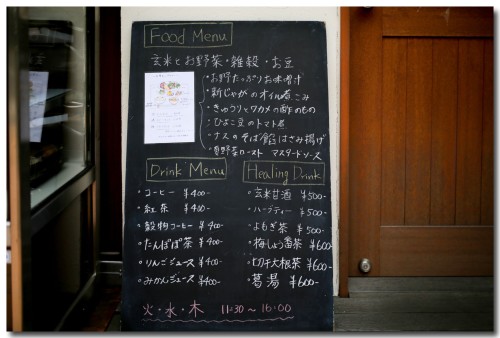 Food Menu
玄米とお野菜・雑穀・お豆
・お野菜たっぷりお味噌汁
・新じゃがのオイル煮こみ
・きゅうりとワカメの酢のもの
・ひよこ豆のトマト煮
・ナスのそば餡はさみ揚げ
・夏野菜ロースト マスタードソース
Drink Menu
・コーヒー ¥400-
・紅茶 ¥400-
・穀物コーヒー ¥400-
・たんぽぽ茶 ¥400-
・りんごジュース ¥400-
・みかんジュース ¥400-
Healing Drink
・玄米甘酒 ¥500-
・ハーブティー ¥500-
・よもぎ茶 ¥500-
・梅しょう番茶 ¥600-
・切干大根茶 ¥600-
・葛湯 ¥600-
火・水・木 11:30～16:00